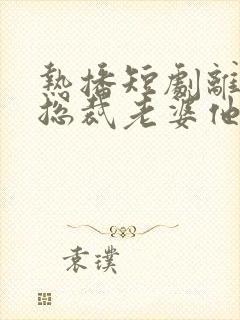 熱播短劇離
總裁老婆他
袁璞